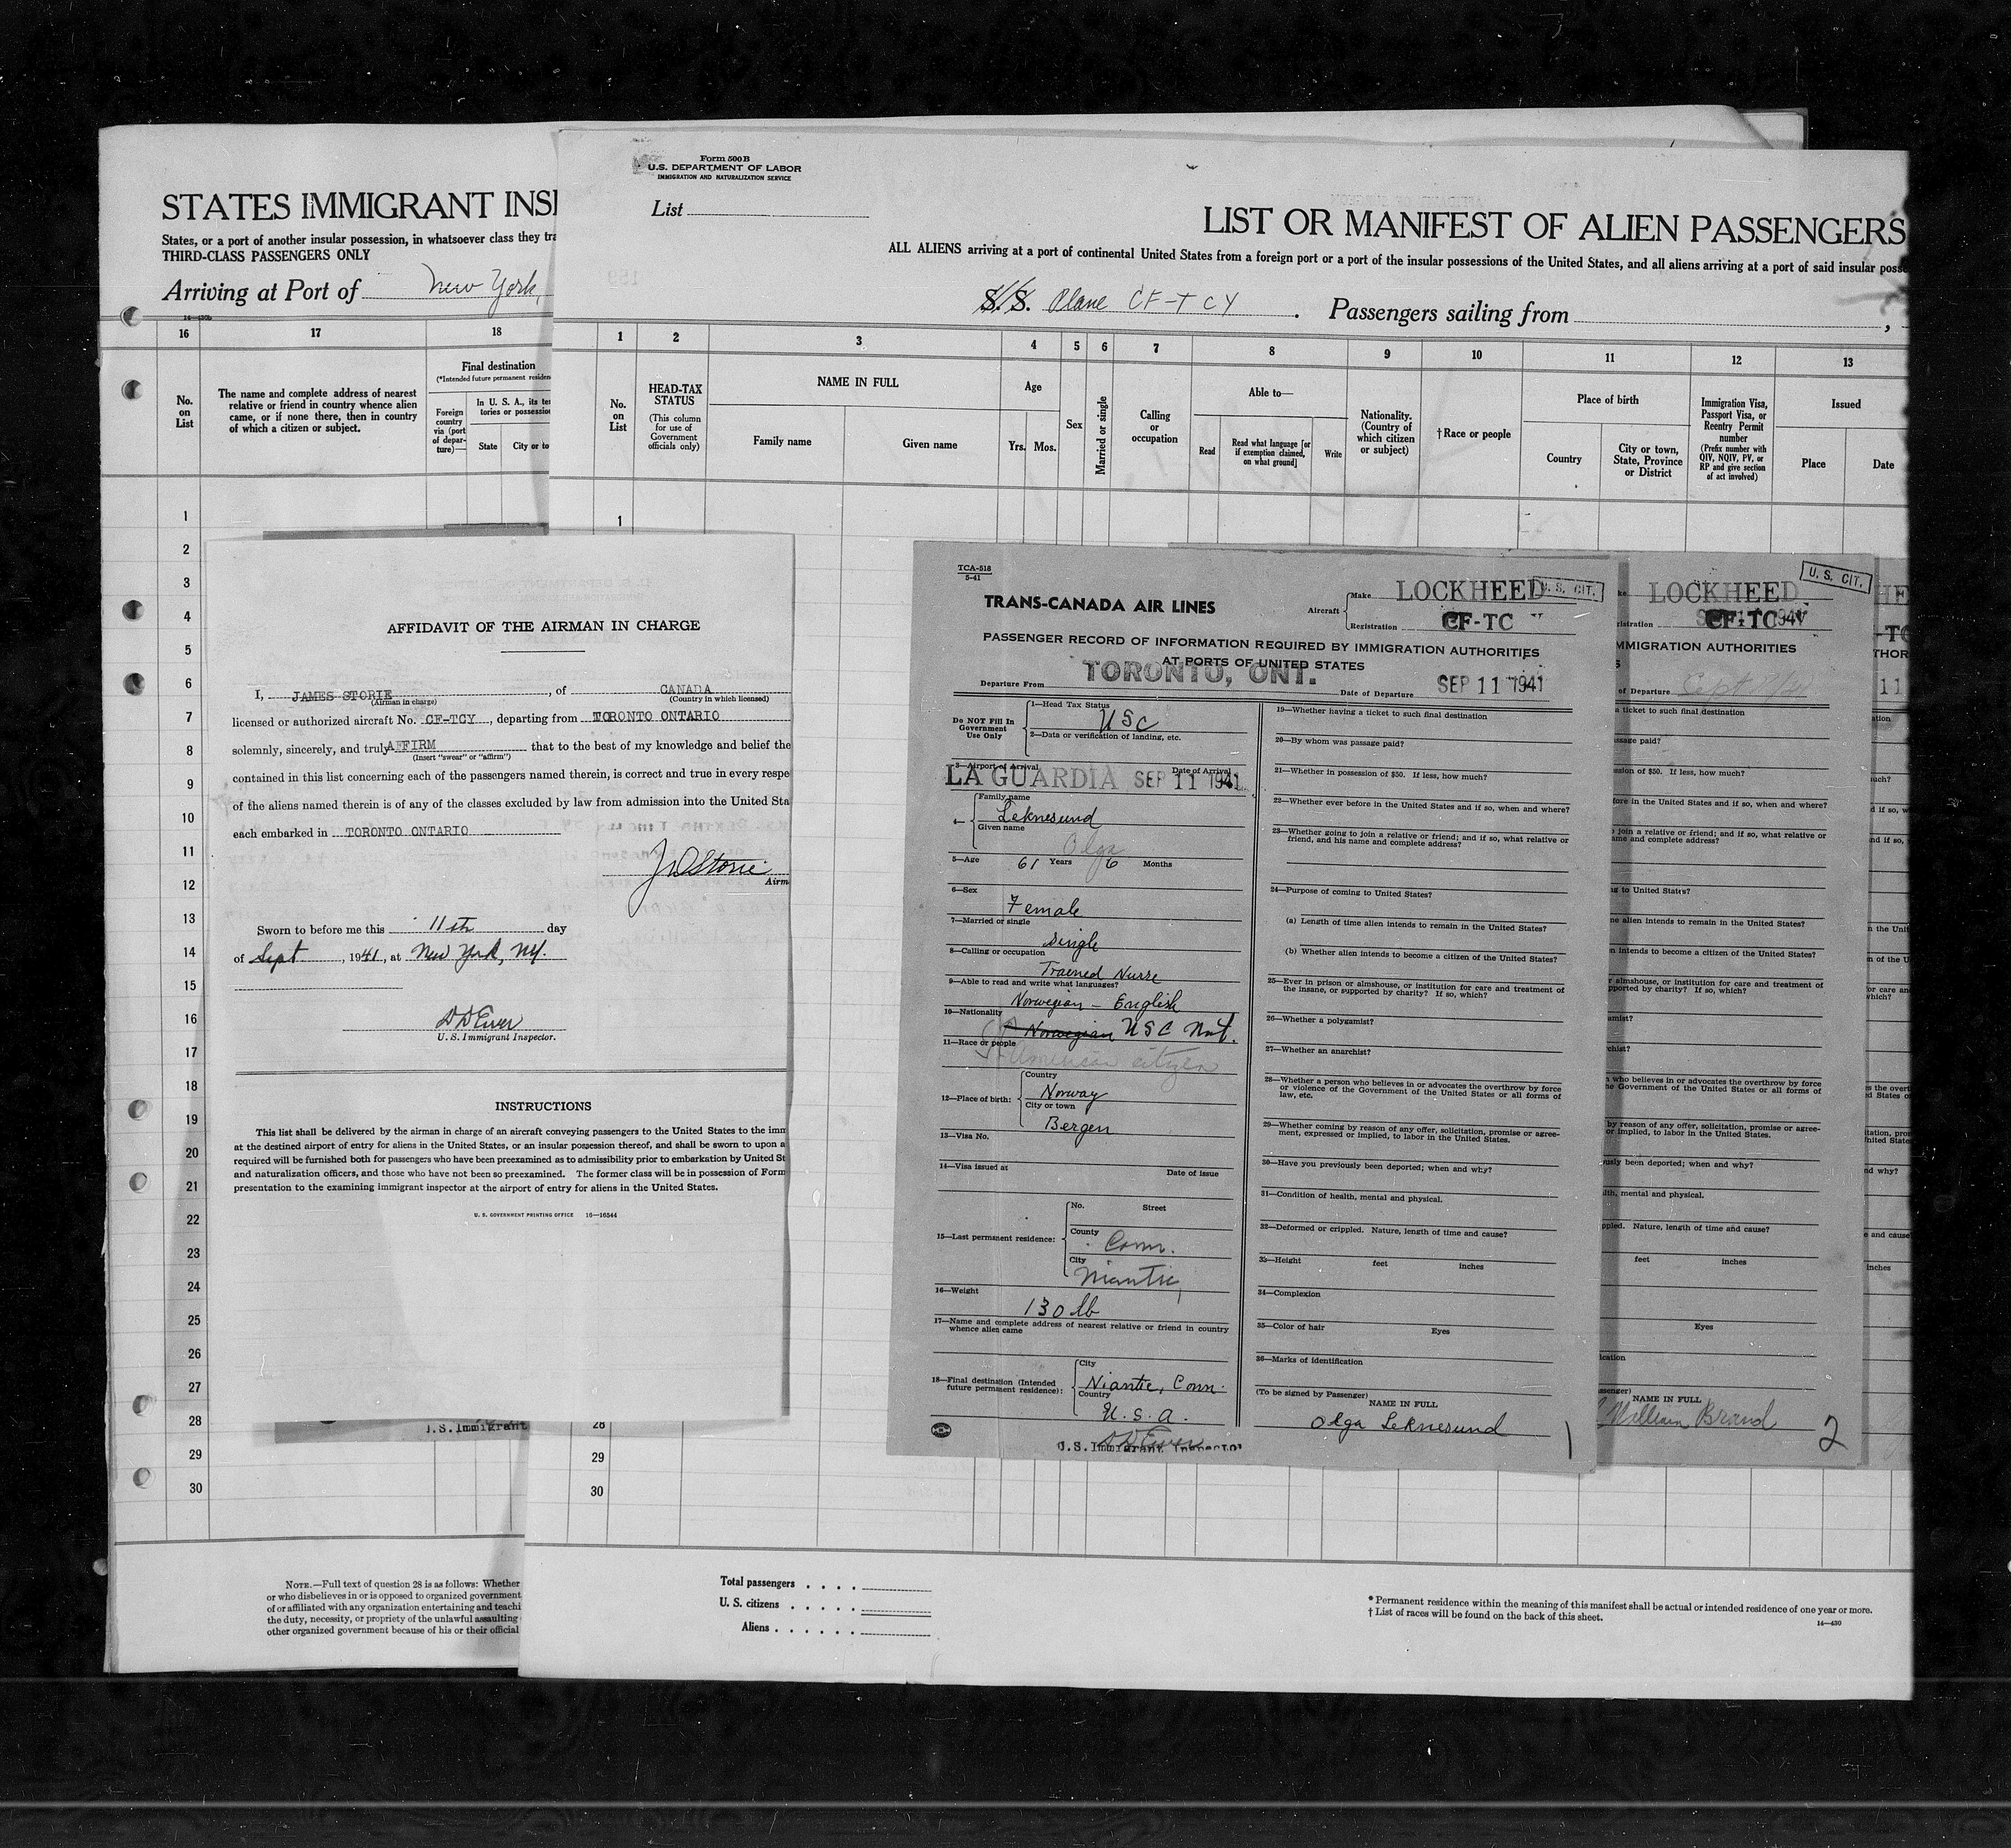 STATES IMMIGRANT INS
States, or a port of another insular possession, in whatsoever class they tra
THIRD-CLASS PASSENGERS ONLY
Arriving at Port of New York,
16
17
18
No. on List
The name and complete address of nearest
relative or friend in country whence alien
came, or if none there, then in country
of which a citizen or subject.
Final destination
(*Intended future permanent residen
Foreign country via (port of depar- ture)—
In U. S. A., its ter
tories or possession
State
City or to
1
2
3
4
5
6
7
8
9
10
11
12
13
14
15
16
17
18
19
20
21
22
23
24
25
26
27
28
29
30
NOTE.—Full text of question 28 is as follows: Whether
or who disbelieves in or is opposed to organized government
of or affiliated with any organization entertaining and teachi
the duty, necessity, or propriety of the unlawful assaulting
other organized government because of his or their official
Form 500 B
U.S. DEPARTMENT OF LABOR
IMMIGRATION AND NATURALIZATION SERVICE
List
LIST OR MANIFEST OF ALIEN PASSENGERS
ALL ALIENS arriving at a port of continental United States from a foreign port or a port of the insular possessions of the United States, and all aliens arriving at a port of said insular posse
S.S. Plane CF-TCY. Passengers sailing from ,
1
2
3
4
5
6
7
8
9
10
11
12
13
No. on List
HEAD-TAX STATUS
(This column for use of Government officials only)
NAME IN FULL
Family name
Given name
Age
Yrs.
Mos.
Sex
Married or single
Calling or occupation
Able to—
Read
Read what language [or if exemption claimed, on what ground]
Write
Nationality. (Country of which citizen or subject)
†Race or people
Place of birth
Country
City or town, State, Province or District
Immigration Visa, Passport Visa, or Reentry Permit number
(Prefix number with QIV, NQIV, PV, or RP and give section of act involved)
Issued
Place
Date
1
28
29
30
Total passengers . . . .
U. S. citizens . . . . .
Aliens . . . . . .
* Permanent residence within the meaning of this manifest shall be actual or intended residence of one year or more.
† List of races will be found on the back of this sheet.
14—430
AFFIDAVIT OF THE AIRMAN IN CHARGE
I, JAMES STORIE, of CANADA
(Airman in charge) (Country in which licensed)
licensed or authorized aircraft No. CF-TCY, departing from TORONTO ONTARIO
solemnly, sincerely, and truly AFFIRM that to the best of my knowledge and belief the
(Insert "swear" or "affirm")
contained in this list concerning each of the passengers named therein, is correct and true in every respe
of the aliens named therein is of any of the classes excluded by law from admission into the United Sta
each embarked in TORONTO ONTARIO
Airm
Sworn to before me this 11th day
of Sept, 1941, at New York, NY.
U. S. Immigrant Inspector.
INSTRUCTIONS
This list shall be delivered by the airman in charge of an aircraft conveying passengers to the United States to the imm
at the destined airport of entry for aliens in the United States, or an insular possession thereof, and shall be sworn to upon a
required will be furnished both for passengers who have been preexamined as to admissibility prior to embarkation by United St
and naturalization officers, and those who have not been so preexamined. The former class will be in possession of Form
presentation to the examining immigrant inspector at the airport of entry for aliens in the United States.
U. S. GOVERNMENT PRINTING OFFICE 16—16544
U.S.Immigrant
TCA-518
5-41
TRANS-CANADA AIR LINES
Aircraft
Make LOCKHEED
U. S. CIT.
Registration CF-TC Y
PASSENGER RECORD OF INFORMATION REQUIRED BY IMMIGRATION AUTHORITIES
AT PORTS OF UNITED STATES
Departure From TORONTO, ONT. Date of Departure SEP 11 1941
Do NOT Fill In Government Use Only
1—Head Tax Status
USC
2—Data or verification of landing, etc.
3—Airport of Arrival Date of Arrival
LA GUARDIA SEP 11 1941
4—
Family name
Leknesund
Given name
Olga
5—Age 61 Years 6 Months
6—Sex
Female
7—Married or single
Single
8—Calling or occupation
Trained Nurse
9—Able to read and write what languages?
Norwegian - English
10—Nationality
Norwegian USC Nat.
11—Race or people
American citizen
12—Place of birth:
Country
Norway
City or town
Bergen
13—Visa No.
14—Visa issued at Date of issue
15—Last permanent residence:
No. Street
County
Conn.
City
Niantic,
16—Weight
130 lb
17—Name and complete address of nearest relative or friend in country
whence alien came
18—Final destination (Intended
future permanent residence):
City
Niantic, Conn.
Country
U. S. A.
U.S.Immigrant Inspector
19—Whether having a ticket to such final destination
20—By whom was passage paid?
21—Whether in possession of $50. If less, how much?
22—Whether ever before in the United States and if so, when and where?
23—Whether going to join a relative or friend; and if so, what relative or
friend, and his name and complete address?
24—Purpose of coming to United States?
(a) Length of time alien intends to remain in the United States?
(b) Whether alien intends to become a citizen of the United States?
25—Ever in prison or almshouse, or institution for care and treatment of
the insane, or supported by charity? If so, which?
26—Whether a polygamist?
27—Whether an anarchist?
28—Whether a person who believes in or advocates the overthrow by force
or violence of the Government of the United States or all forms of
law, etc.
29—Whether coming by reason of any offer, solicitation, promise or agree-
ment, expressed or implied, to labor in the United States.
30—Have you previously been deported; when and why?
31—Condition of health, mental and physical.
32—Deformed or crippled. Nature, length of time and cause?
33—Height feet inches
34—Complexion
35—Color of hair Eyes
36—Marks of identification
(To be signed by Passenger)
NAME IN FULL
Olga Leknesund
1
LOCKHEED
U. S. CIT.
CF-TC Y
MMIGRATION AUTHORITIES
of Departure
a ticket to such final destination
ssage paid?
ssion of $50. If less, how much?
fore in the United States and if so, when and where?
join a relative or friend; and if so, what relative or
ame and complete address?
ng to United States?
ne alien intends to remain in the United States?
n intends to become a citizen of the United States?
r almshouse, or institution for care and treatment of
pported by charity? If so, which?
amist?
chist?
n who believes in or advocates the overthrow by force
he Government of the United States or all forms of
by reason of any offer, solicitation, promise or agree-
or implied, to labor in the United States.
usly been deported; when and why?
lth, mental and physical.
ppled. Nature, length of time and cause?
feet inches
Eyes
ication
ssenger)
NAME IN FULL
William Brand
2